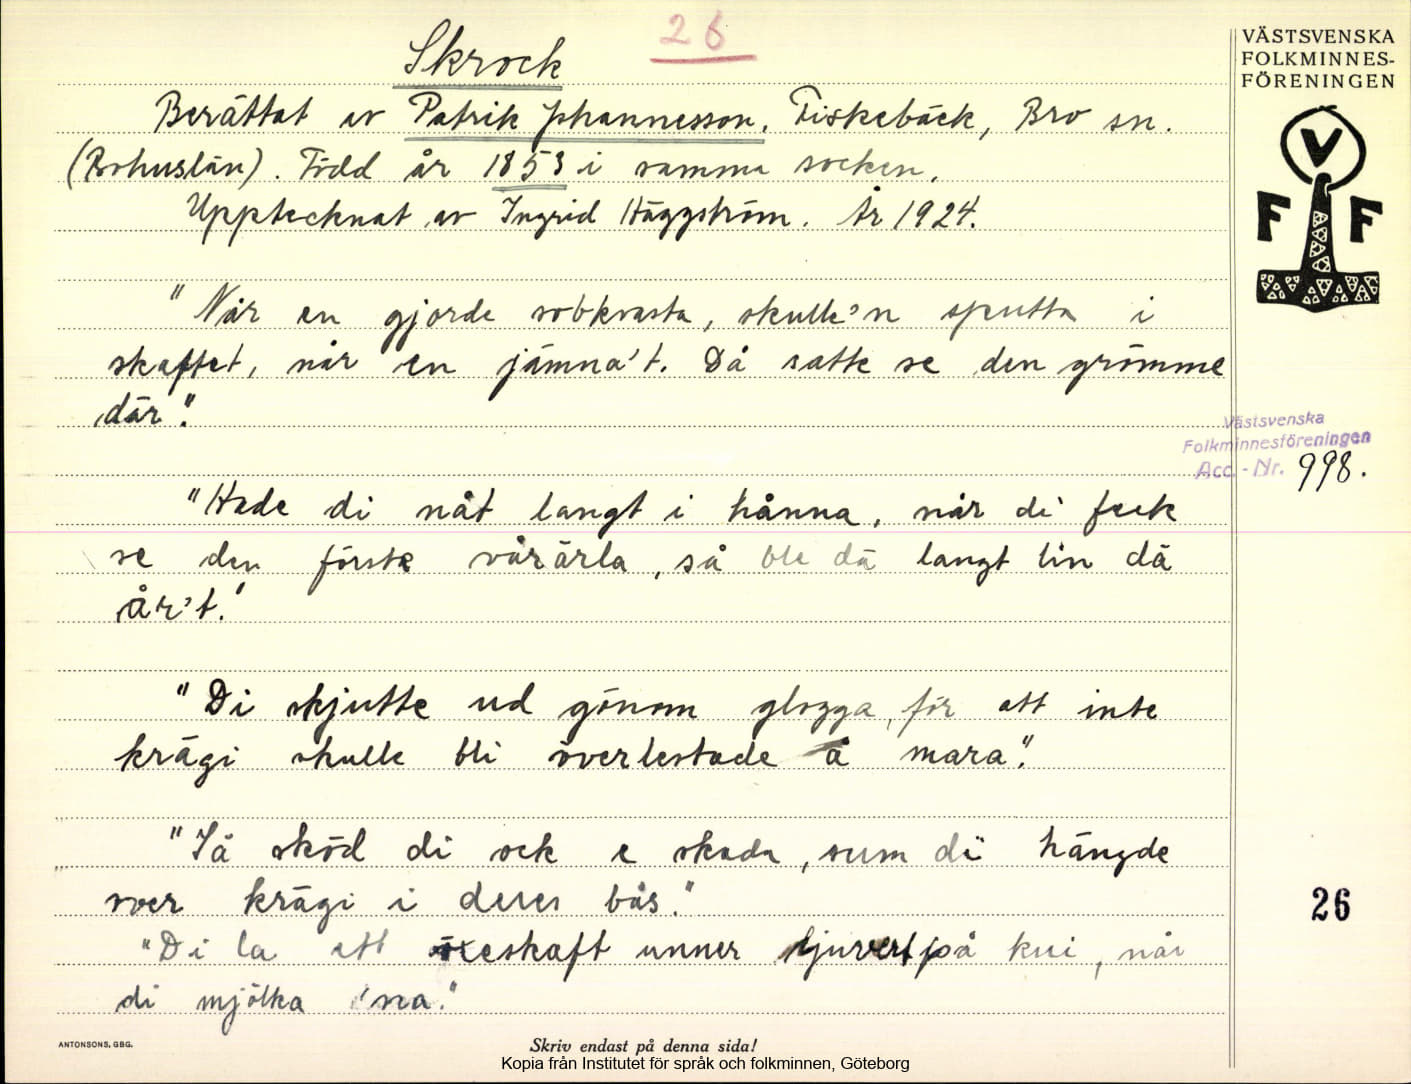 26
Skrock
Berättat av Patrik Johannesson, Fiskebäck, Bro sn.
(Bohuslän). Född år 1853 i samma socken.
Upptecknat av Ingrid Häggström. År 1924.
"Når en gjorde sobkvasta, skulle'n sputta i
skaftet, når en jämna't. Då satte se den grömme
där."
"Hade di nåt langt i hånna, når di feck
se den förste vårärla, så ble dä langt lin dä
år't."
"Di skjutte ud gönom glogga, för att inte
krägi skulle bli överlestade å mara."
"Så sköd di ock e skada, sum di hängde
over krägi i deres bås."
"Di la ett öxeskaft unner juvert på kui, når
di mjölka 'na."
VÄSTSVENSKA
FOLKMINNES-
FÖRENINGEN
V
F F
Västsvenska
Folkminnesföreningen
Acc.-Nr. 998.
26
ANTONSONS, GBG.
Skriv endast på denna sida!
Kopia från Institutet för språk och folkminnen, Göteborg